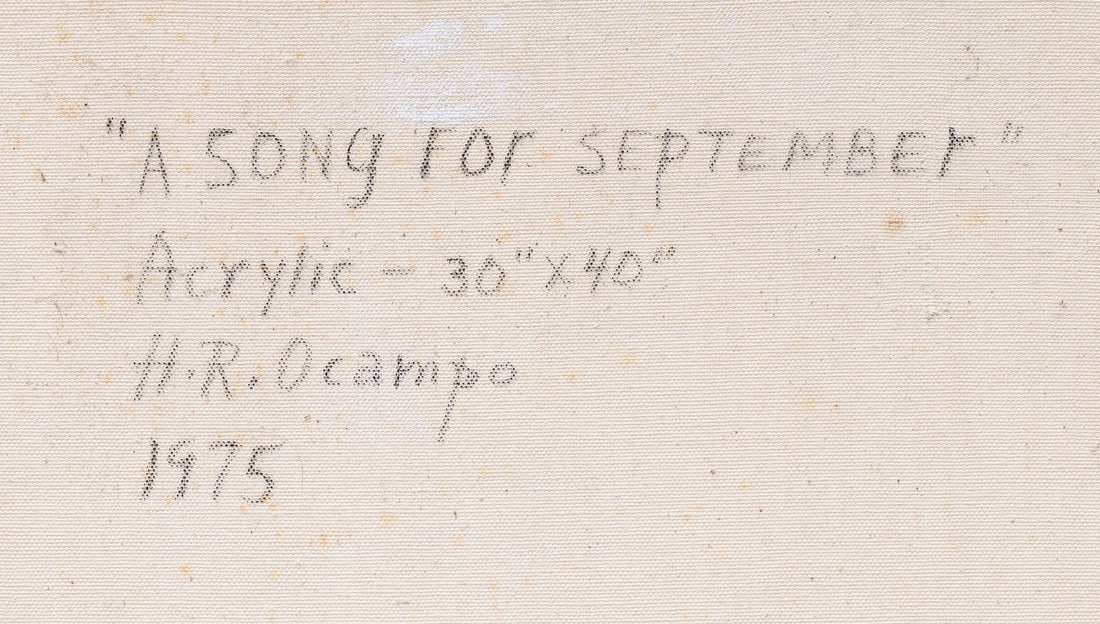 "A SONg FOr SEpTEMBEr"
Acrylic - 30" x 40"
H.R. Ocampo
1975